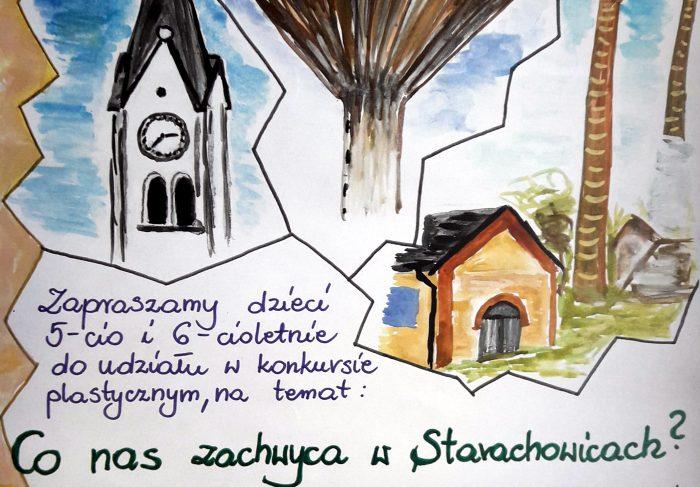 Zapraszamy dzieci
5-cio i 6-cioletnie
do udziału w konkursie
plastycznym, na temat:
Co nas zachwyca w Starachowicach?